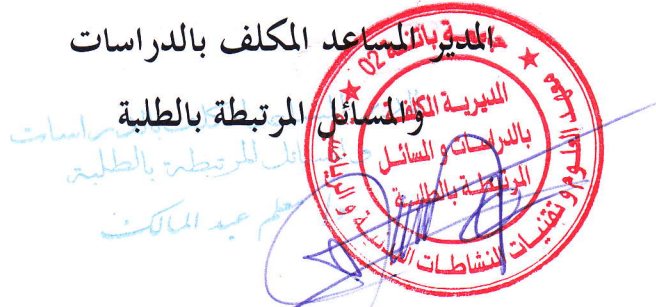 المدير المساعد المكلف بالدراسات
والمسائل المرتبطة بالطلبة
جامعة باتنة 02
معهد العلوم و تقنيات النشاطات البدنية و الرياضية
المديرية المكلفة
بالدراسات و المسائل
المرتبطة بالطلبة
المكلف بالدراسات
والمسائل المرتبطة بالطلبة
معلم عبد المالك